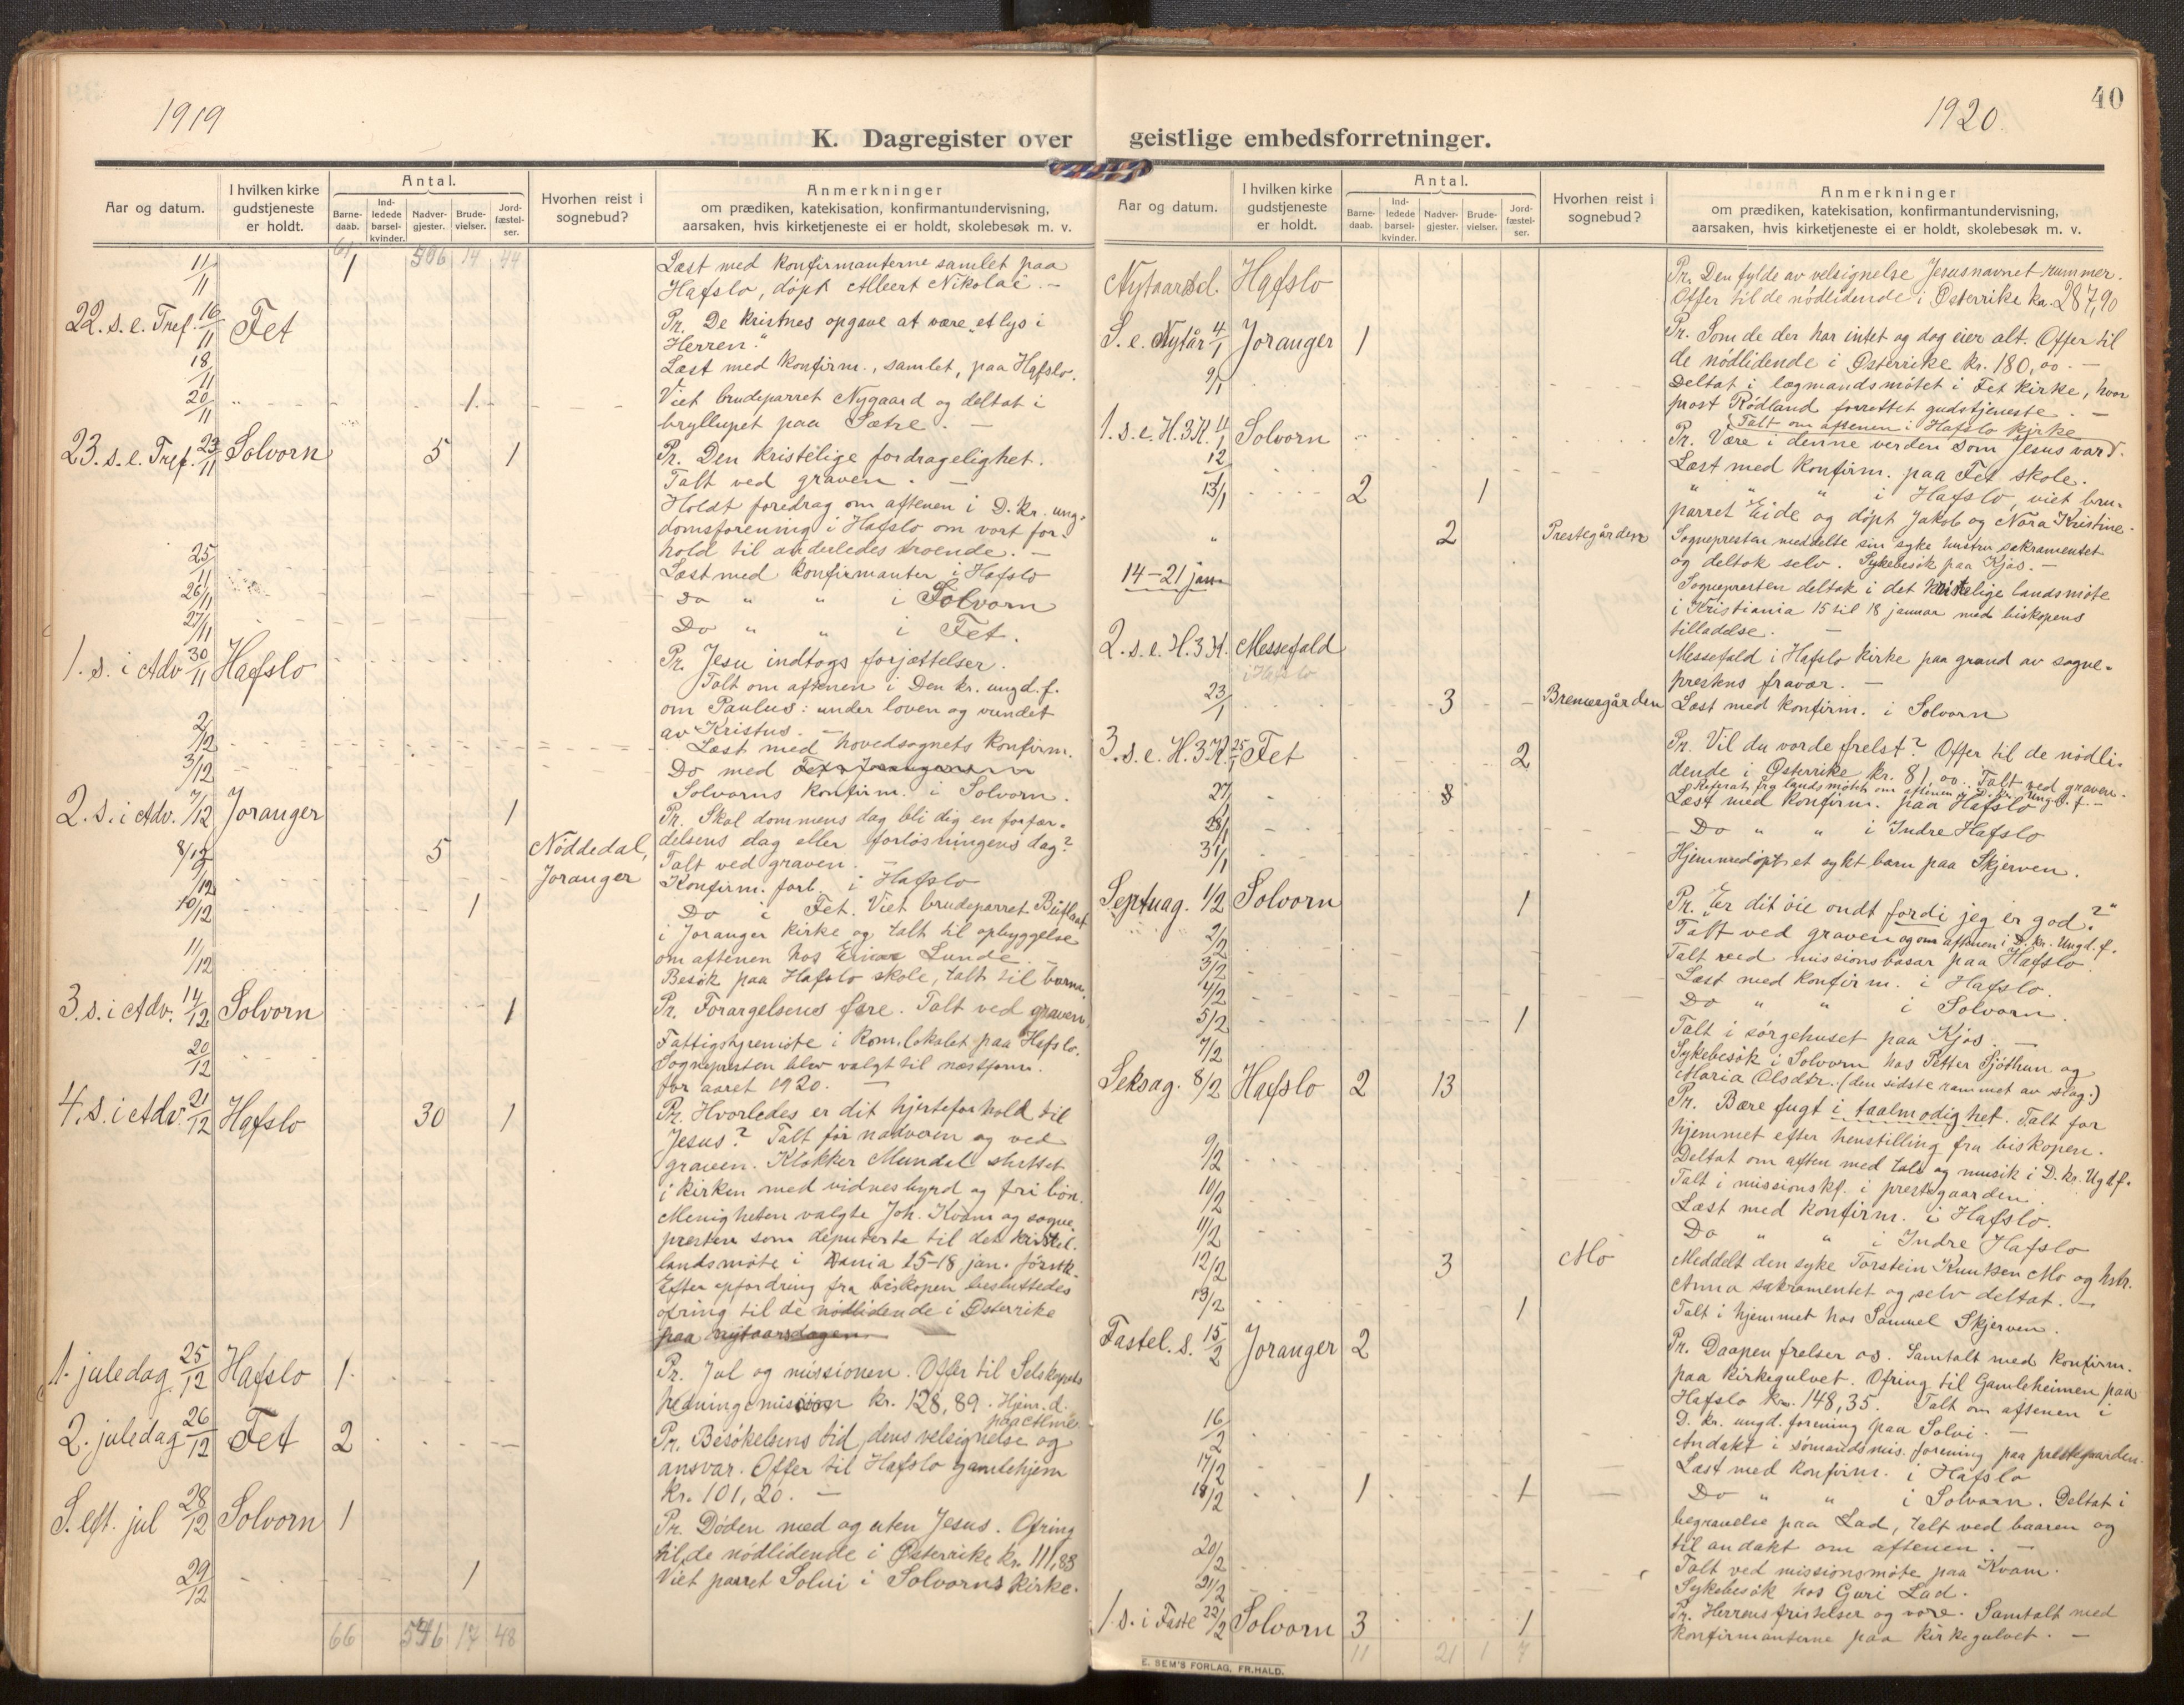 1919
K. Dagregister over
Aar og datum.
I hvilken kirke gudstjeneste er holdt.
Antal.
Barnedaab.
Indledede barselkvinder.
Nadvergjester.
Brudevielser.
Jordfæstelser.
Hvorhen reist i sognebud?
Anmerkninger
om prædiken, katekisation, konfirmantundervisning,
aarsaken, hvis kirketjeneste ei er holdt, skolebesøk m. v.
61 506 14 44
11/11 1 Læst med konfirmanterne samlet paa
Hafslo, døpt Albert Nikolai. –
22. s. e. Tref. 16/11 Fet Pr. De kristnes opgave at være „et lys i
Herren."
18/11 Læst med konfirm., samlet, paa Hafslo.
20/11 1 Viet brudeparret Nygaard og deltat i
bryllupet paa Sætre. –
23. s. e. Tref. 23/11 Solvorn 5 1 Pr. Den kristelige fordragelighet.
Talt ved graven. –
Holdt foredrag om aftenen i D. kr. ung-
domsforening i Hafslo om vort for-
hold til anderledes troende. –
25/11 Læst med konfirmanter i Hafslo
26/11 Do " " i Solvorn
27/11 Do " " i Fet.
1. s. i Adv 30/11 Hafslo Pr. Jesu indtogs forjættelser.
Talt om aftenen i Den kr. ungd. f.
om Paulus: under loven og vundet
av Kristus. –
2/12 Læst med hovedsognets konfirm.
3/12 Do med
Solvorns konfirm. i Solvorn.
2. s. i Adv. 7/12 Joranger 1 Pr. Skal dommens dag bli dig en forfær-
delsens dag eller forløsningens dag?
Talt ved graven. –
8/12 5 Nøddedal, Joranger
Konfirm. forb. i Hafslo
10/12 1 Do i Fet. Viet brudeparret
i Joranger kirke og talt til opbyggelse
om aftenen hos Einar Lunde. –
11/12 Besøk paa Hafslo skole, talt til barna.
3. s. i Adv. 14/12 Solvorn 1 Pr. Forargelsens fare. Talt ved graven.
20/12 Fattigstyremøte i kom.lokalet paa Hafslo.
Sognepresten blev valgt til næstform.
for aaret 1920. –
4. s. i Adv. 21/12 Hafslo 30 1 Pr. Hvorledes er dit hjerteforhold til
Jesus? Talt før nadveren og ved
graven. Klokker Mundal sluttet
i kirken med vidnesbyrd og fri bøn.
Menigheten valgte Joh. Kvam og sogne-
presten som deputerte til det kristel.
landsmøte i Krania 15–18 jan. førstk.
Efter opfordring fra biskopen besluttedes
ofring til de nødlidende i Østerrike
paa nytaarsdagen
1. juledag 25/12 Hafslo 1 Pr. Jul og missionen. Offer til Selskapets
hedningemission kr. 128,89. Hjem. d.
2. juledag 26/12 Fet 2 Pr. Besøkelsens tid, dens velsignelse og
ansvar. Offer til Hafslo gamlehjem
kr. 101,20. –
S. eft. jul 28/12 Solvorn 1 Pr. Døden med og uten Jesus. Ofring
til de nødlidende i Østerrike kr. 111,83
29/12 1 Viet parret Solvi i Solvorns kirke.
66 546 17 48
1920.
40
geistlige embedsforretninger.
Aar og datum.
I hvilken kirke gudstjeneste er holdt.
Antal.
Barnedaab.
Indledede barselkvinder.
Nadvergjester.
Brudevielser.
Jordfæstelser.
Hvorhen reist i sognebud?
Anmerkninger
om prædiken, katekisation, konfirmantundervisning,
aarsaken, hvis kirketjeneste ei er holdt, skolebesøk m. v.
Nytaarsd. Hafslo Pr. Den fylde av velsignelse Jesusnavnet rummer.
Offer til de nødlidende i Østerrike kr. 287,90
S. e. Nytår 4/1 Joranger 1 Pr. Som de der har intet og dog eier alt. Offer til
de nødlidende i Østerrike kr. 180,00. –
9/1 Deltat i lægmandsmøtet i Fet kirke, hvor
prost Rødland forrettet gudstjeneste. –
Talt om aftenen i Hafslo kirke
1. s. e. H.3.K. 11/1 Solvorn Pr. Være i denne verden som Jesus var.
12/1 Læst med konfirm. paa Fet skole.
13/1 2 1 " " " i Hafslo, viet bru-
parret Eide og døpt Jakob og Nora Kristine.
" 2 Prestegården Sognepresten meddelte sin syke hustru sakramentet
og deltok selv. Sykebesøk paa Kjos. –
14–21 jan Sognepresten deltok i det kristelige landsmøte
i Kristiania 15 til 18 januar med biskopens
tilladelse. –
2. s. e. H.3.K. Messefald i Hafslo Messefald i Hafslo kirke paa grund av sogne-
prestens fravær. –
23/1 3 Bremergården Læst med konfirm. i Solvorn
3. s. e. H.3.K. 25/1 Fet 2 Pr. Vil du vorde frelst? Offer til de nødli-
dende i Østerrike kr. 81,00. Talt ved graven.
Referat fra landsmøtet om aftenen i D. kr. Ungd. f. –
27/1 Læst med konfirm. paa Hafslo
28/1 Do " " i Indre Hafslo
31/1 Hjemmedøpt et sykt barn paa Skjerven.
Septuag. 1/2 Solvorn 1 Pr. „Er dit øie ondt fordi jeg er god?"
Talt ved graven og om aftenen i D. kr. Ungd. f.
2/2 Talt ved missionsbasar paa Hafslo.
3/2 Læst med konfirm. i Hafslo.
4/2 Do " " i Solvorn.
5/2 1 Talt i sørgehuset paa Kjos. –
7/2 Sykebesøk i Solvorn hos Petter Sjøthun og
Maria Olsdtr. (den sidste rammet av slag.)
Seksag. 8/2 Hafslo 2 13 Pr. Bære frugt i taalmodighet. Talt for
hjemmet efter henstilling fra biskopen.
Deltat om aften med tale og musik i D. kr. Ugdf.
9/2 Talt i missionskf. i prestegaarden.
10/2 Læst med konfirm. i Hafslo.
11/2 Do " " i Indre Hafslo
12/2 3 Mo Meddelt den syke Torstein Knutsen Mo og hstr.
Anna sakramentet og selv deltat. –
13/2 1 Talt i hjemmet hos Samuel Skjerven.
Fastel. s. 15/2 Joranger 2 Pr. Daapen frelser os. Samtalt med konfirm.
paa kirkegulvet. Ofring til Gamleheimen paa
Hafslo kr. 148,35. Talt om aftenen i
D. kr. ungd. forening paa Solvi. –
16/2 Andakt i sømandsmis. forening paa prestegaarden.
17/2 Læst med konfirm. i Hafslo
18/2 1 1 Do " " i Solvorn. Deltat i
begravelse paa Lad, talt ved baaren og
til andakt om aftenen. –
20/2 Talt ved missionsmøte paa Kvam.
21/2 Sykebesøk hos Guri Lad.
1. s. i Faste 22/2 Solvorn 3 1 Pr. Herrens fristelser og vore. Samtalt med
konfirmanterne paa kirkegulvet. –
11 21 1 7
E. SEM'S FORLAG, FR.HALD.